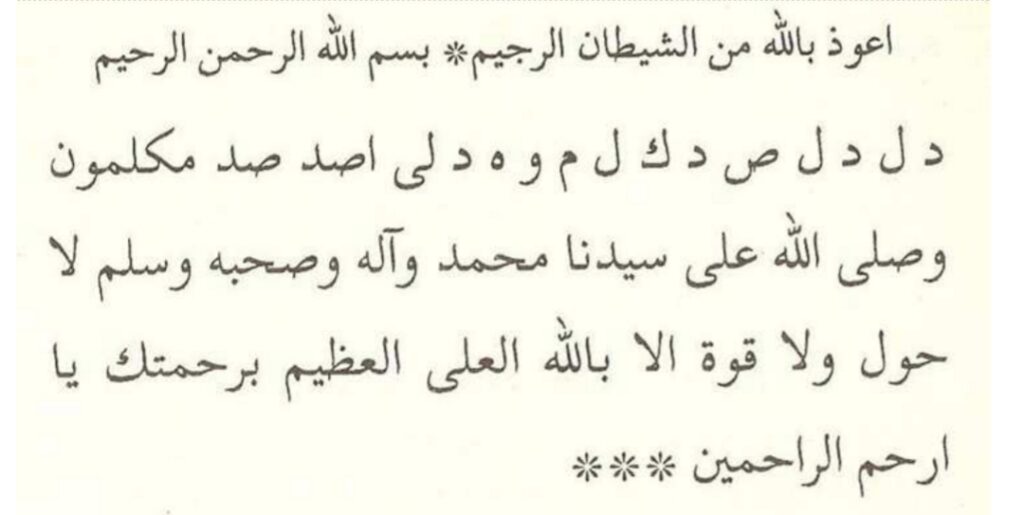 اعوذ بالله من الشيطان الرجيم* بسم الله الرحمن الرحيم
د ل د ل ص د ك ل م و ه د لى اصد صد مكلمون
وصلى الله على سيدنا محمد وآله وصحبه وسلم لا
حول ولا قوة الا بالله العلى العظيم برحمتك يا
ارحم الراحمين ***